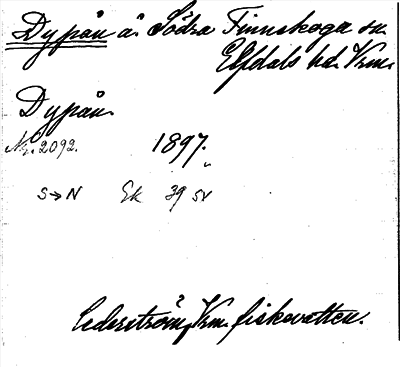 Dypån å. Södra Finnskoga sn.
Elfdals hd. Vrm.
Dypån.
Ny. 2092. 1897.
S→N Ek 39 sv
Cederström, Vrm. fiskevatten.